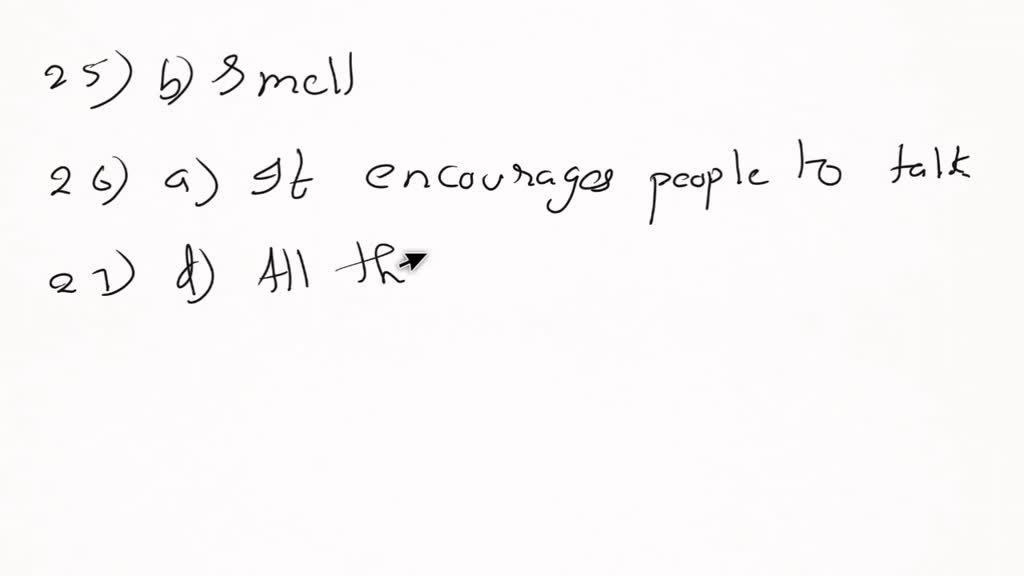 25) b) Smell
26) a) It encourages people to talk
27) d) All th